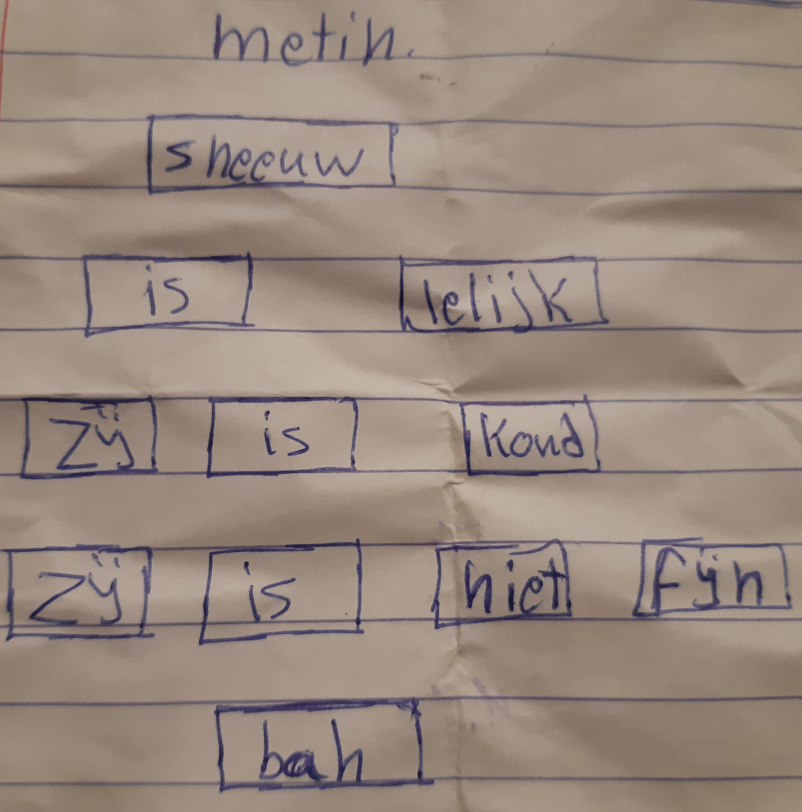 metin.
sneeuw
is lelijk
zij is koud
zij is niet fijn
bah